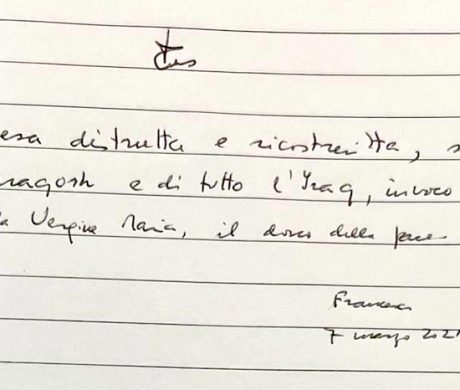 esa distrutta e ricostruita, s
ragosh e di tutto l'Iraq, invoco
la Vergine Maria, il dono della pace
Francesco
7 marzo 2021